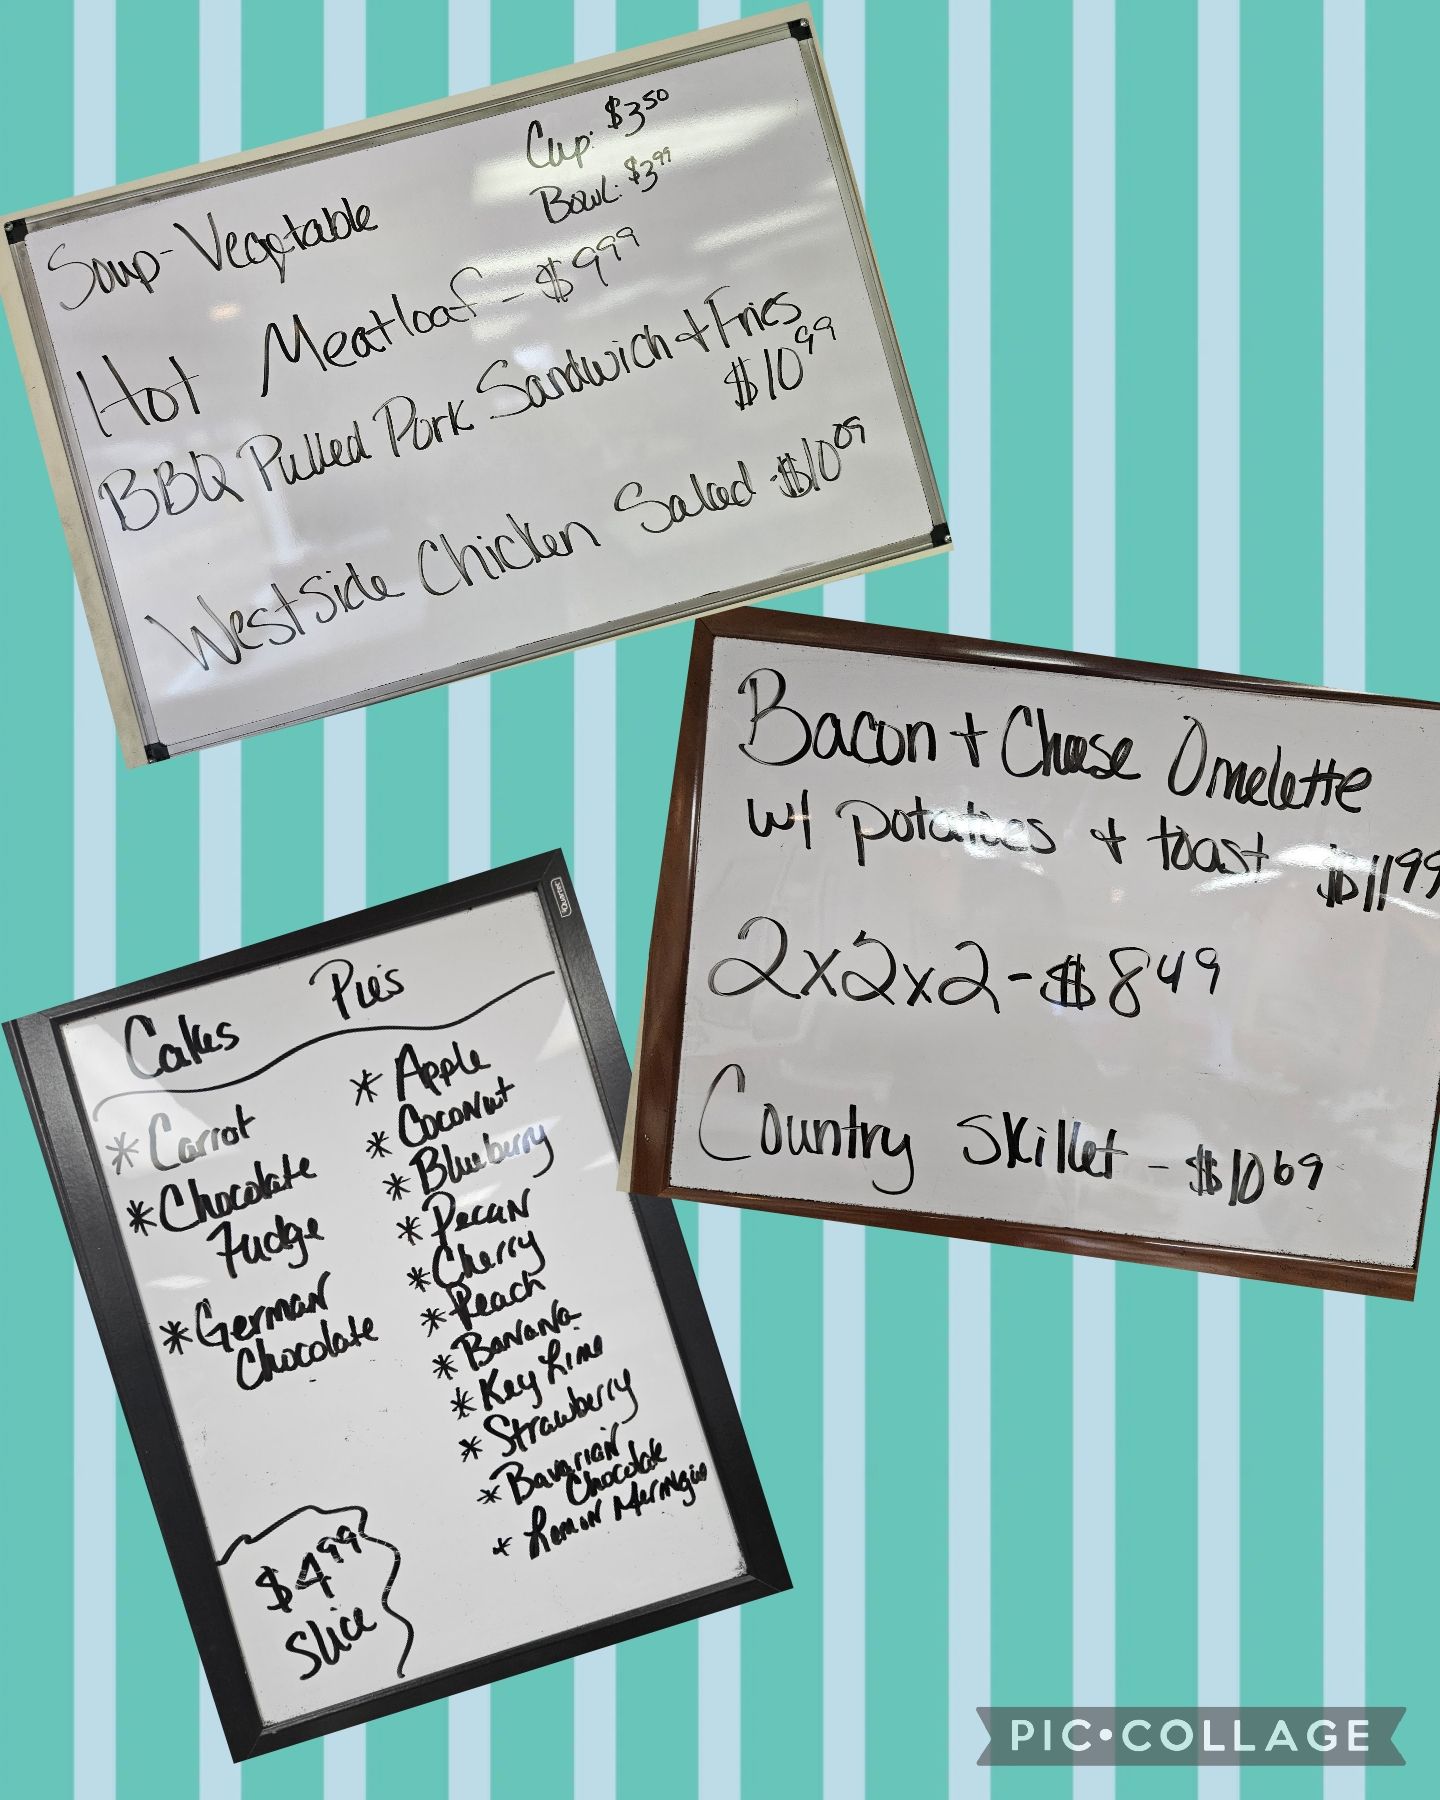 Cup: $3.50
Bowl: $3.99
Soup - Vegetable
Hot Meatloaf - $9.99
BBQ Pulled Pork Sandwich + Fries
$10.99
Westside Chicken Salad - $10.09
Bacon + Cheese Omelette
w/ potatoes + toast $11.99
2x2x2 - $8.49
Country Skillet - $10.69
Quartet
Cakes
* Carrot
* Chocolate
Fudge
* German
Chocolate
$4.99
Slice
Pie's
* Apple
* Coconut
* Blueberry
* Pecan
* Cherry
* Peach
* Banana
* Key Lime
* Strawberry
* Bavarian
Chocolate
* Lemon
PIC•COLLAGE